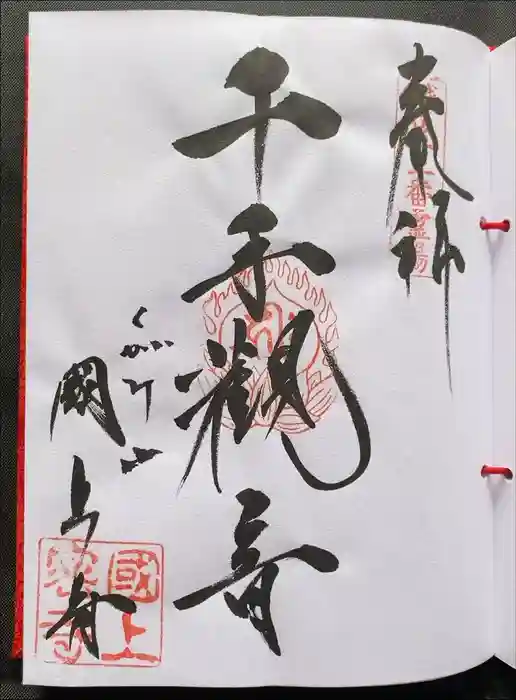 奉拝
千手観音
くがみ山
國上寺
國上寺
番霊場